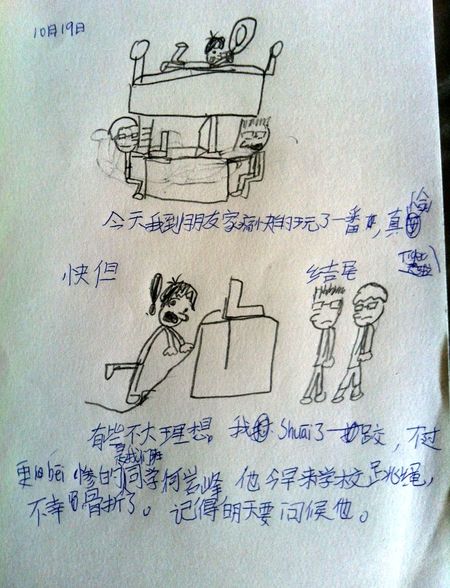 10月19日
今天我到朋友家痛快的玩了一番,真
快但 结尾
有些不大理想。我 Shuai了一跤,不过
更 bēi 惨的是我们班同学何岩峰 他今早来学校跳绳,
不幸 骨折了。记得明天要问候他。